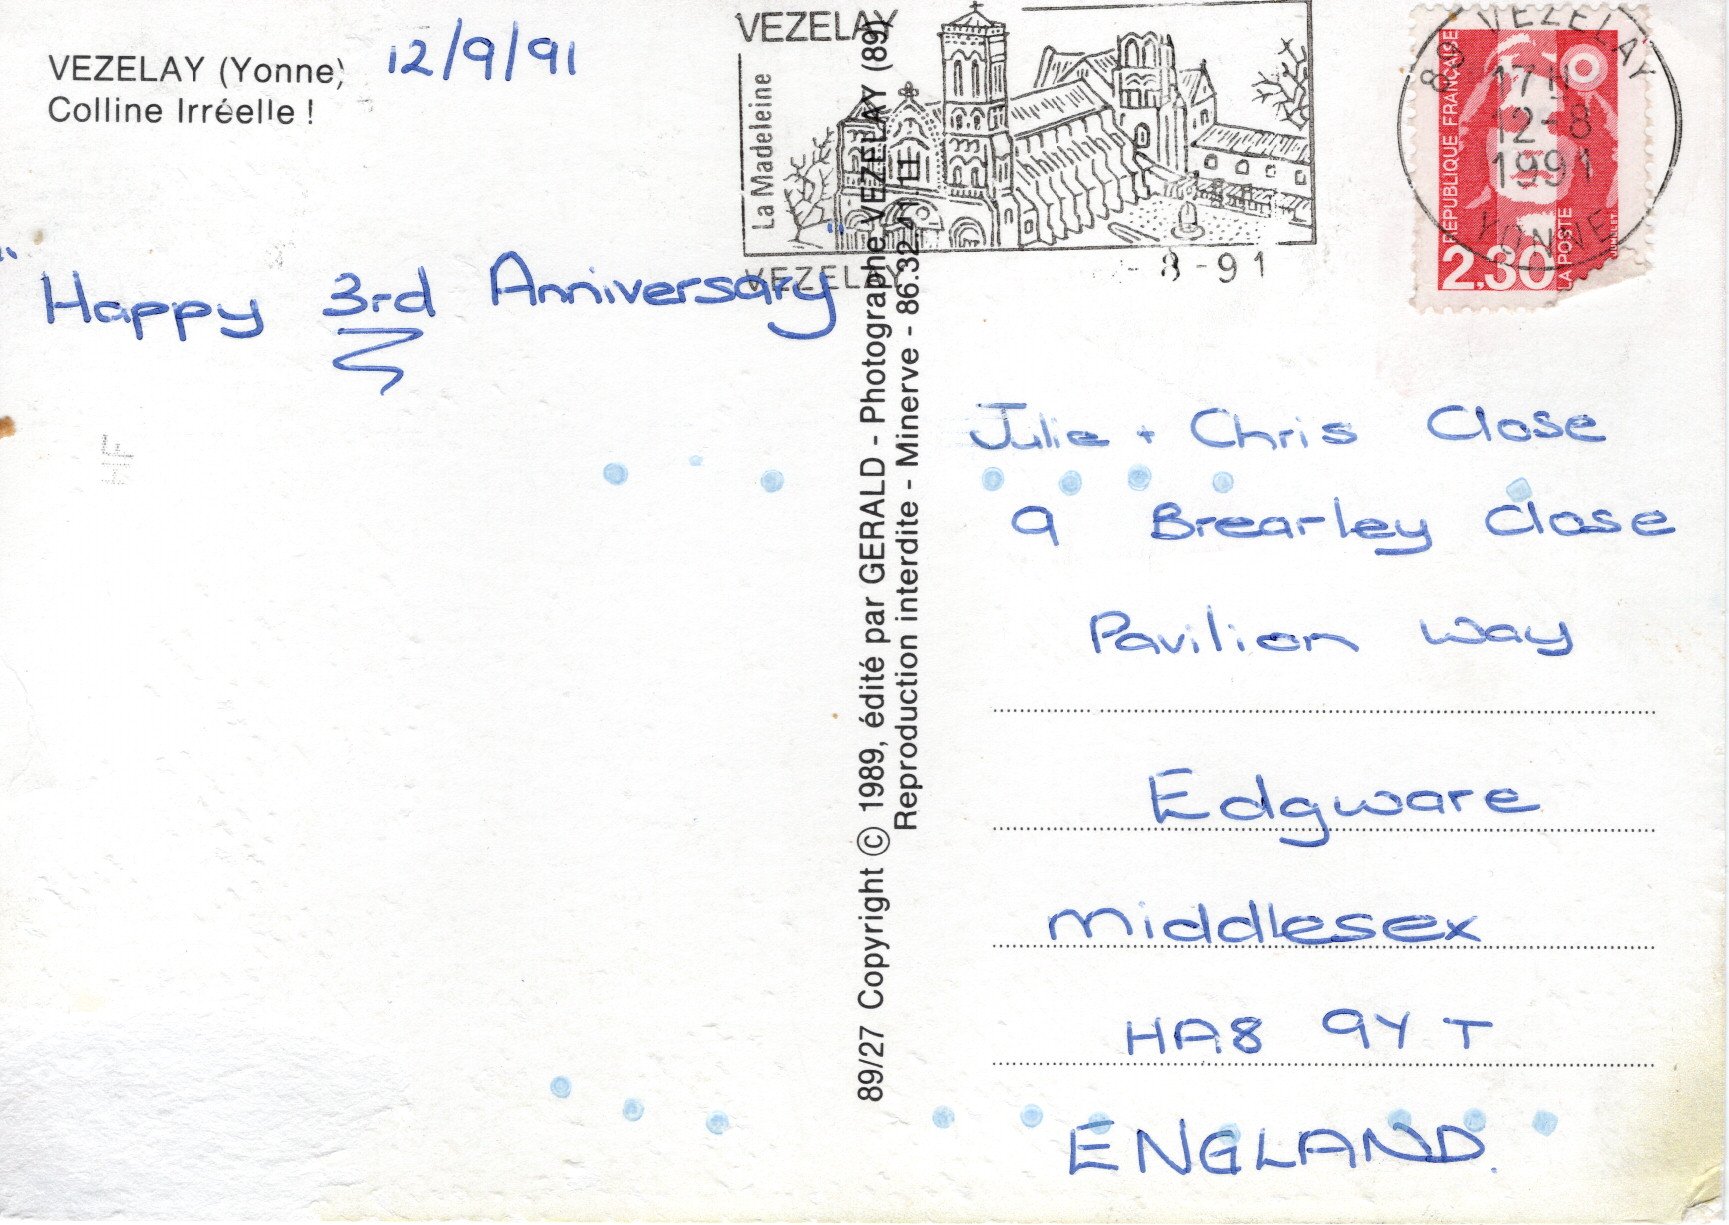 VEZELAY (Yonne)
Colline Irréelle !
12/9/91
"Happy 3rd Anniversary"
VEZELAY
La Madeleine
VEZELAY
-8-91
89 VEZELAY
17H
12-8
1991
YONNE
REPUBLIQUE FRANÇAISE
2,30
LA POSTE
89/27 Copyright © 1989, édité par GERALD - Photographe VEZELAY (89)
Reproduction interdite - Minerve - 86.32.41 11
Julie + Chris Close
9 Brearley Close
Pavilion Way
Edgware
Middlesex
HA8 9YT
ENGLAND.